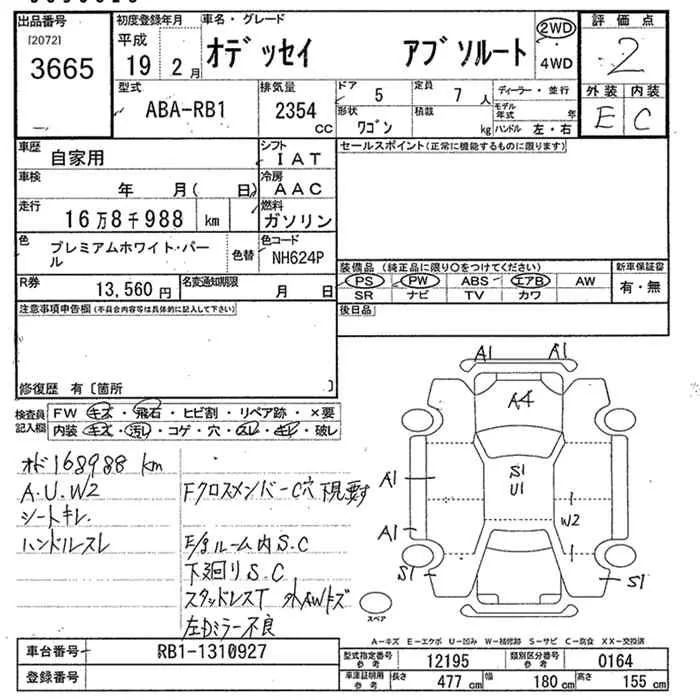 出品番号
[2072]
3665
初度登録年月
平成
19 2月
車名・グレード
オデッセイ アブソルート
2WD
4WD
評価点
2
外装 内装
E C
型式
ABA-RB1
排気量
2354 CC
ドア 5
定員 7人
形状 ワゴン
積載 kg
ディーラー・並行
モデル年式 年
ハンドル 左・右
車歴
自家用
シフト
IAT
車検
年 月( 日)
冷房
AAC
走行
16万8千988 km
燃料
ガソリン
色
プレミアムホワイト・パール
色替
色コード
NH624P
R券
13,560円
名変通知期限
月 日
セールスポイント(正常に機能するものに限ります)
装備品 (純正品に限り○をつけてください)
新車保証書
PS PW ABS エアB AW
SR ナビ TV カワ
有・無
後日品
注意事項申告欄(不具合内容等は具体的に記入して下さい)
修復歴 有〔箇所 〕
検査員記入欄
FW キズ・飛石・ヒビ割・リペア跡・×要
内装 キズ・汚レ・コゲ・穴・スレ・キレ・破レ
オド168988 km
A.U.W2
シートキレ.
ハンドルスレ
Fクロスメンバー C穴 下見要す
E/gルーム内S.C
下廻りS.C
スタッドレスT 外AWキズ
左Dミラー不良
A1 A1
A4
A1
S1
U1
W2
A1
S1
S1
スペア
A-キズ E-エクボ U-凹み W-補修跡 S-サビ C-腐食 XX-交換済
車台番号
RB1-1310927
登録番号
型式指定番号 参考 12195
類別区分番号 参考 0164
車庫証明用 参考
長さ 477 cm
幅 180 cm
高さ 155 cm